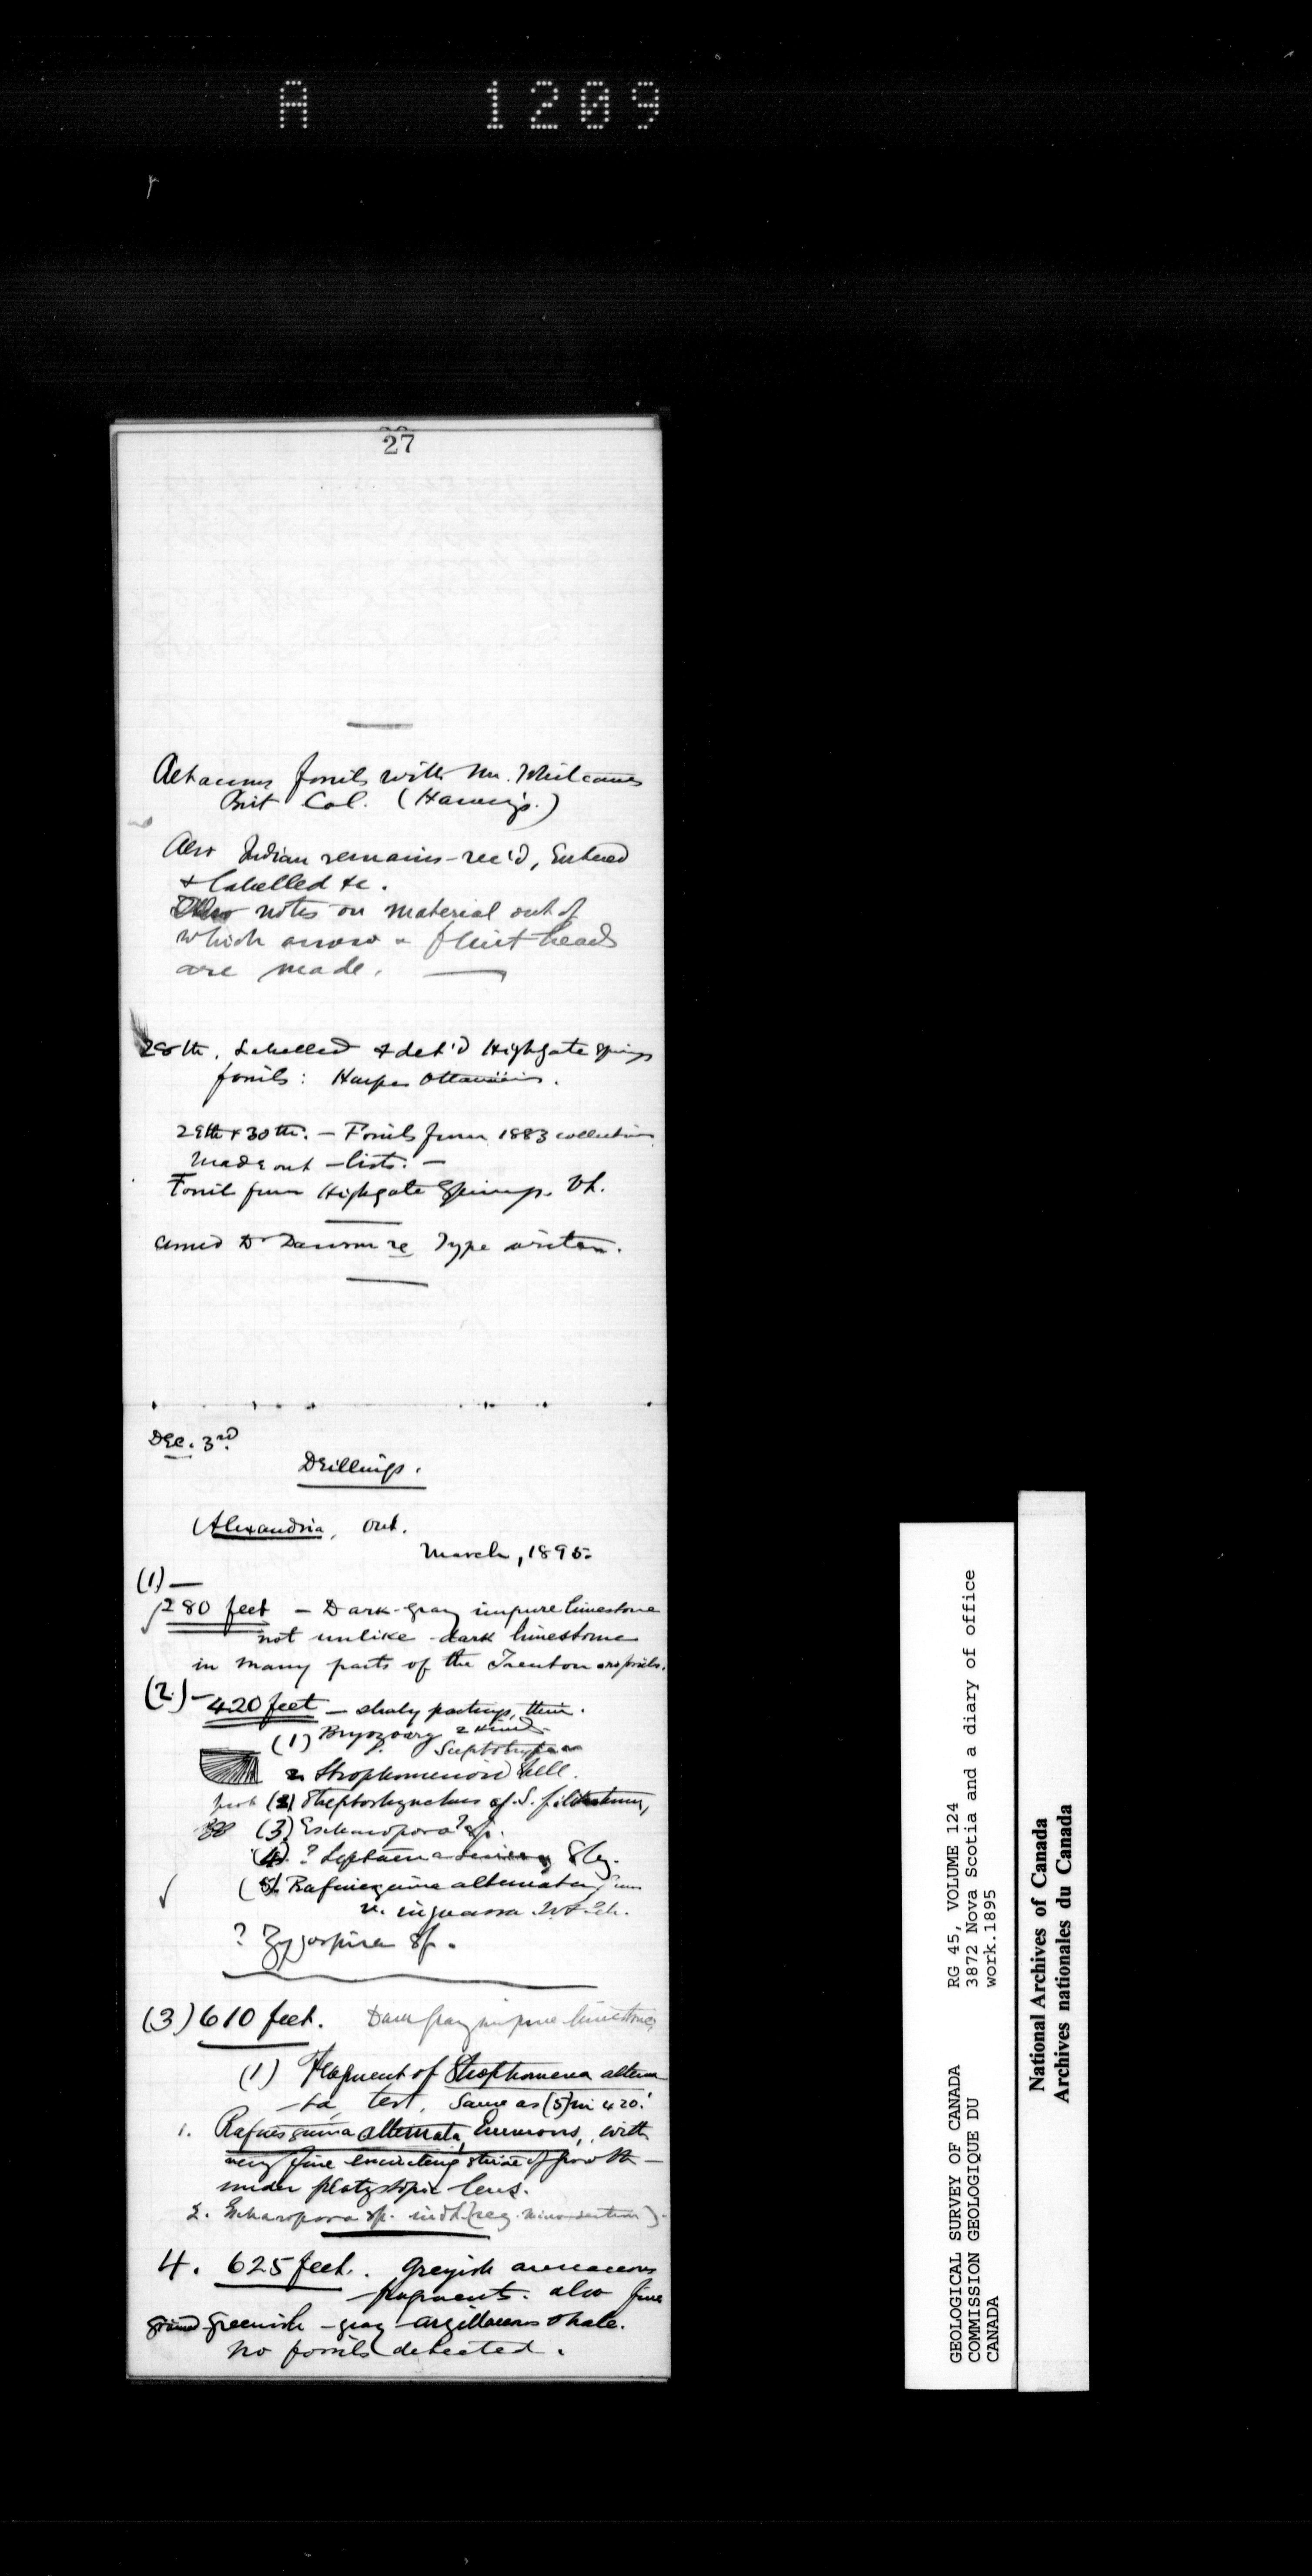 A 1209
27
fossils with Mr. Whiteaves
Brit Col. (
Also Indian remains - rec'd, Entered
& labelled &c.
Also notes on material out of
which arrow & flint heads
are made.
28th. Labelled & det'd Highgate Springs
fossils:
29th & 30th. - Fossils from 1883 collections
made out - lists. -
Fossils from Highgate Springs. Vt.
Dr Dawson re Type
Dec. 3rd.
Drillings.
Alexandria, Ont.
March, 1895.
(1) -
280 feet - Dark-gray impure limestone
not unlike dark limestone
in many parts of the Trenton no fossils.
(2.) - 420 feet - shaly partings, thin.
(1) Bryozoary 2 kinds
2 Strophomenoid shell.
prob (2) Streptorhynchus cf. S. filitextum,
(3) Escharopora? sp.
(4). ? Leptaena sericea Sby.
(5) Rafinesquina alternata,
? Zygospira sp.
(3) 610 feet. Dark gray impure limestones
(1) Fragment of Strophomena alterna
-ta, test. Same as (5) in 420'.
1. Rafinesquina alternata, Emmons, with
very fine encircling striae of growth -
under platyscopic lens.
2. Escharopora sp. indt (
4. 625 feet. Greyish arenaceous
fragments. also fine
grained greenish - gray argillaceous shale.
No fossils detected.
GEOLOGICAL SURVEY OF CANADA
COMMISSION GEOLOGIQUE DU
CANADA
RG 45, VOLUME 124
3872 Nova Scotia and a diary of office
work.1895
National Archives of Canada
Archives nationales du Canada